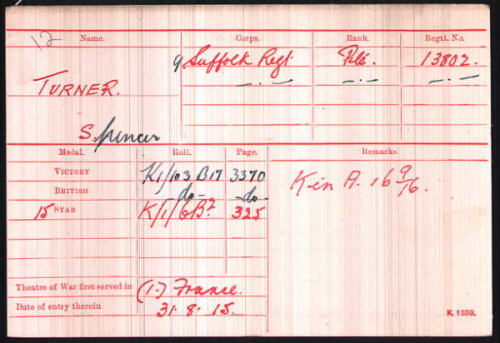 12 Name. Corps. Rank. Regtl. No.
TURNER. 9 Suffolk Regt. Pte. 13802.
Spencer
Medal. Roll. Page. Remarks.
VICTORY K1/103 B17 3370
BRITISH do- -do-
15 STAR K/1/6B² 325
K in A. 16 9/16.
Theatre of War first served in (1.) France.
Date of entry therein 31.8.15.
K. 1380.